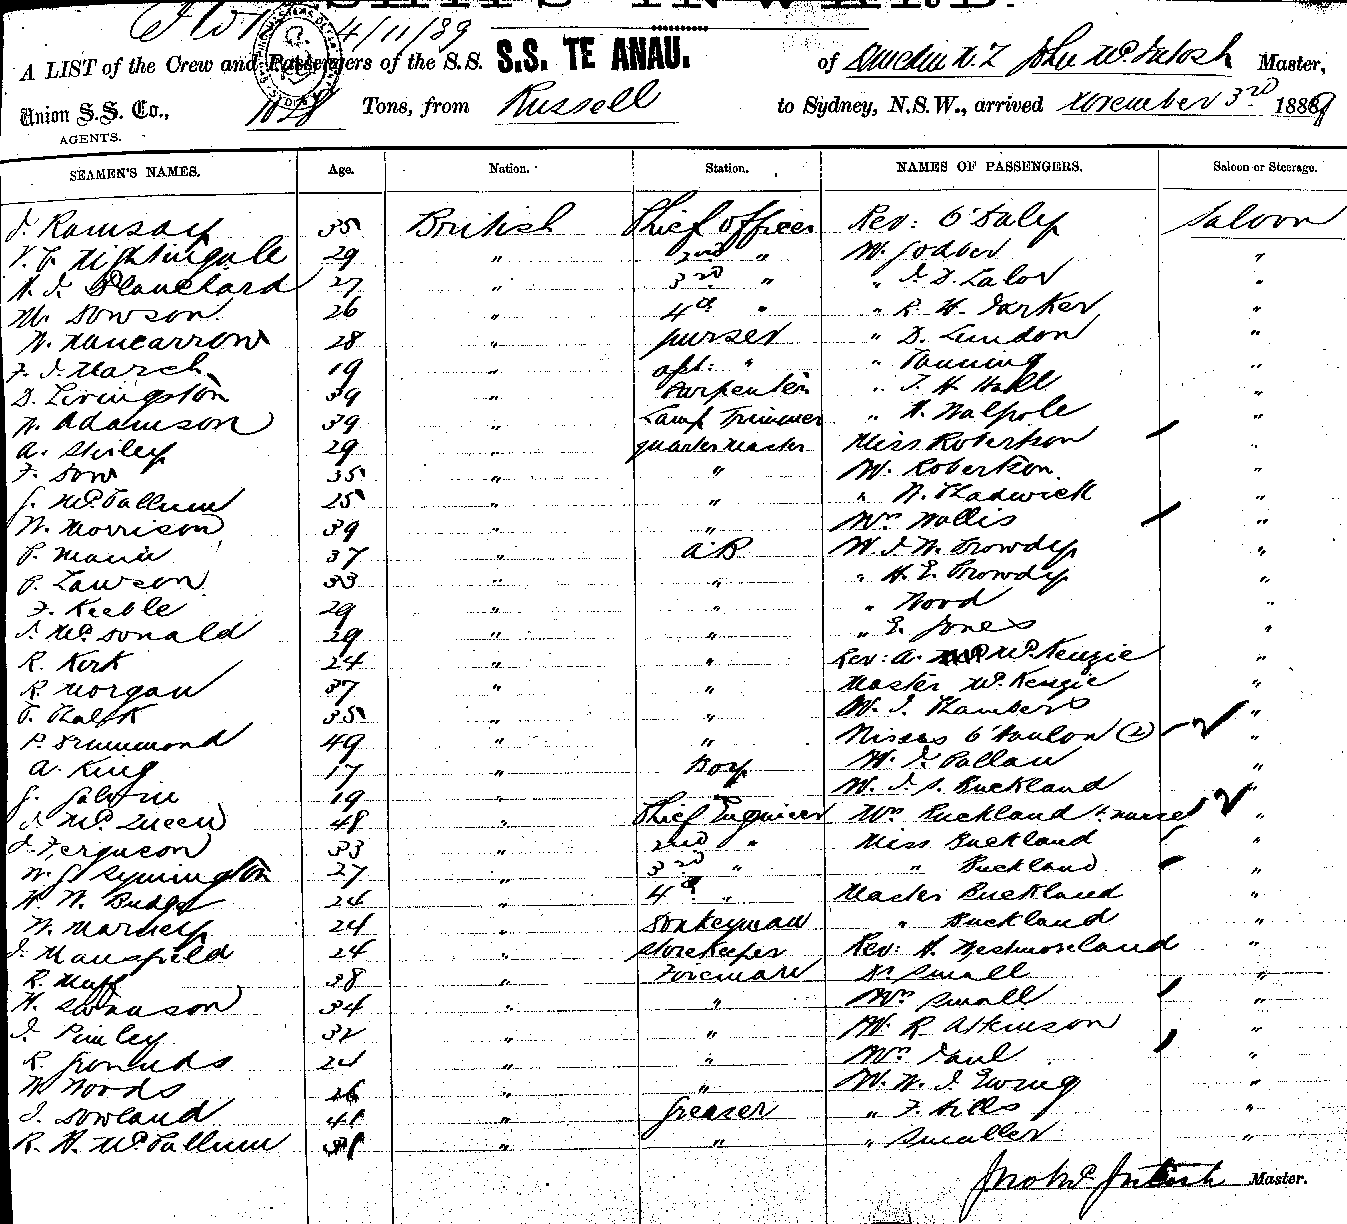 SHIPS INWARD.
4/11/89
A LIST of the Crew and Passengers of the S.S. S.S. TE ANAU. of Dunedin N.Z John McIntosh Master,
Union S.S. Co., 1028 Tons, from Russell to Sydney, N.S.W., arrived November 3rd 1889
AGENTS.
SEAMEN'S NAMES. Age. Nation. Station. NAMES OF PASSENGERS. Saloon or Steerage.
J. Ramsay 35 British Chief Officer Rev: O'Daly Saloon
Nightingale 29 " 2nd " Mr. Godber "
Blanchard 27 " 3rd " " J. D. Lalor "
Dowson 26 " 4th " " R. H. Parker "
W. Nancarrow 28 " purser " D. Lundon "
F. J. March 19 " " " Fanning "
D. Livingston 39 " Carpenter " T. H. Hall "
W. Adamson 39 " Lamp Trimmer " Walpole "
A. Shirley 29 " quartermaster Miss Robertson "
F. Dow 35 " " Mr. Robertson "
J. McCallum 25 " " " Chadwick "
W. Morrison 39 " " Mrs Wallis "
P. 37 " A B Mr J. W. Crowdy "
P. Lawson 33 " " " H. E. Crowdy "
F. Keeble 29 " " " Wood "
J. McDonald 29 " " " E. Jones "
R. Kirk 24 " " Rev: A. McKenzie "
R. Morgan 37 " " Master McKenzie "
35 " " Mr. J. Chambers "
P. Drummond 49 " " Misses O'Hanlon (2) "
A. King 17 " Boy Mr. J. Callan "
J. 19 " Mr. J. S. Buckland "
J. McQueen 48 " Chief Engineer Mrs Buckland & nurse "
J. Ferguson 33 " 2nd " Miss Buckland "
W. J. Symington 27 " 3rd " " Buckland "
H. W. Budge 24 " 4th " Master Buckland "
W. Marney 24 " Donkeyman " Buckland "
J. Mansfield 24 " Storekeeper Rev: H. Westmoreland "
R. 38 " Fireman Dr Small "
Swanson 34 " " Mrs Small "
J. 32 " " Mr. R. Atkinson "
R. Grounds 24 " " Mrs Paul "
W. Woods 26 " " Mr. W. J. Ewing "
J. Dowland 41 " Greaser " F. Hills "
R. H. McCallum 31 " " " Smaller "
Jno McIntosh Master.